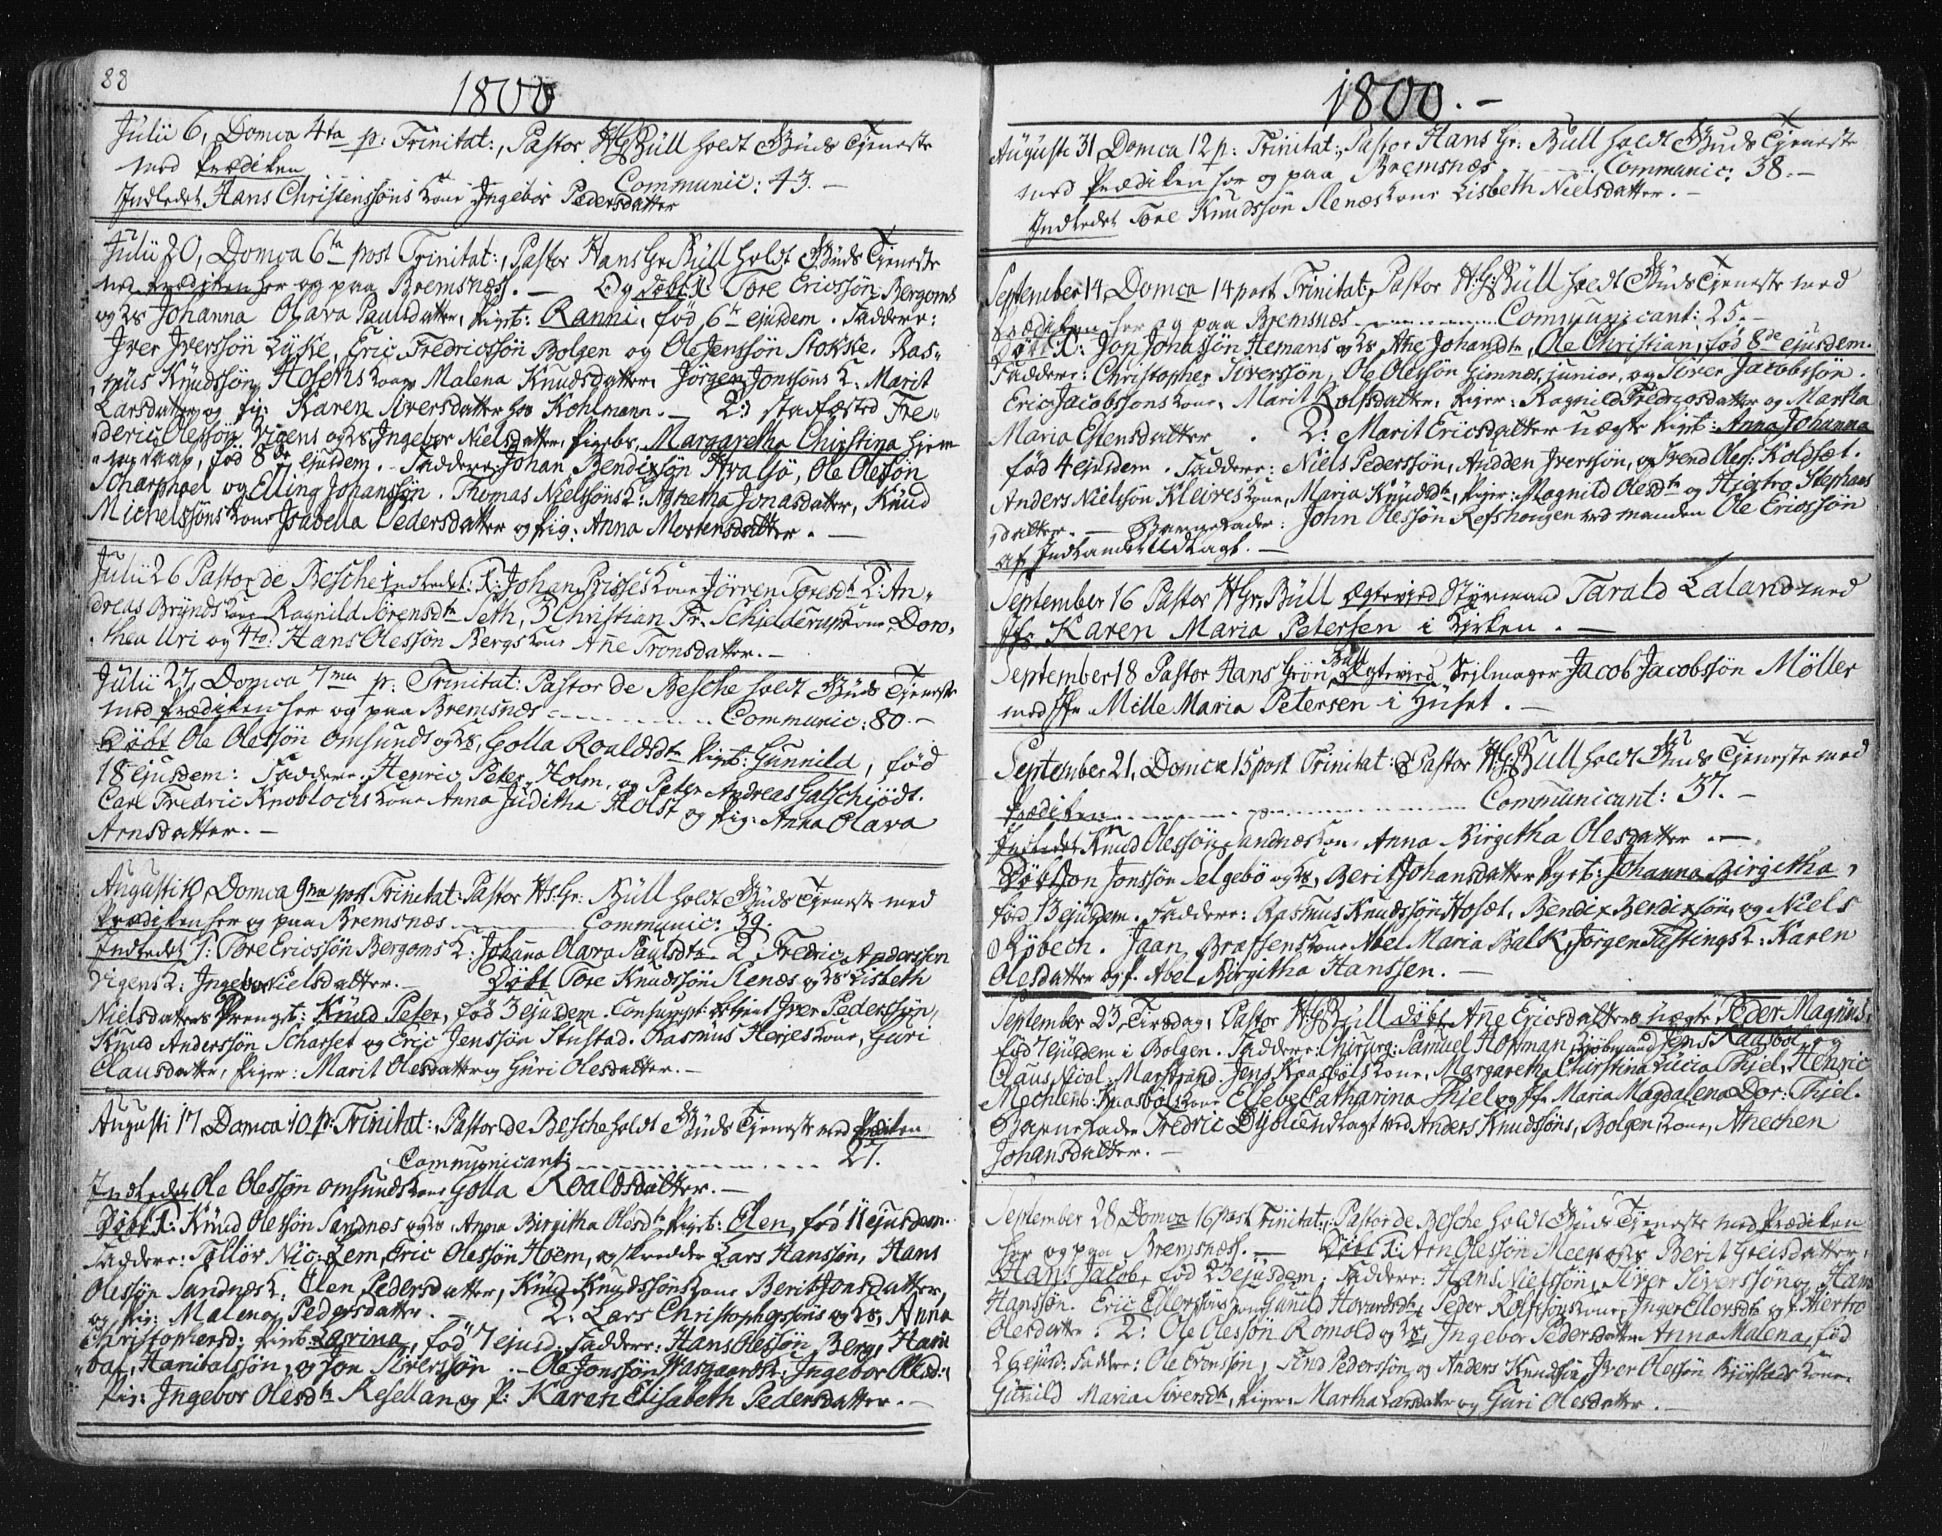 88
1800
Julii 6, Domca 4ta p: Trinitat:, Pastor HGBüll holdt Guds Tjeneste
med Prædiken
Communic: 43. —
Indledet Hans Christenssøns Kone Ingebor Pedersdatter
Julii 20, Domca 6ta post Trinitat:, Pastor Hans Gr Büll holdt Guds Tjeneste
med Prædiken her og paa Bremsnæss. — Og Døbt 1: Tore Ericssøn Bergoms
og Hs Johanna Olava Paulsdatter, Pigeb: Ranni, fød 6te ejusdem. Faddere:
Iver Iverssøn Lyke, Eric Fredricssøn Bolgen og Ole Jenssøn Stokke. Ras-
mus Knudssøn Hosets Kone Malena Knudsdatter. Jørgen Jonssøns K: Marit
Larsdatter og Pig: Karen Siversdatter hos Kohlmann. — 2: Fre-
deric Olessøn Vigens og Hs Ingebor Nielsdatter, Pigebr. Margaretha Christina hjem
fød 8de ejusdem. Faddere: Johan Bendixsøn Qvalsø, Ole Olesøn
Scharphoel og Elling Johanssøn. Thomas Nielssøns K: Agnetha Jonasdatter, Knud
Michelssøns Kone Isabella Pedersdatter og Pig: Anna Mortensdatter. —
Julii 26 Pastor de Besche Indledet: 1: Johan Prisses Kone Jørren Toresdt 2: An-
dreas Brynds Kone Ragnild Sørensdtr Seth, 3 Christian Fr. Schjelderups Kone Doro-
thea Uri og 4to: Hans Olessøn Bergs Kone Anne Tronsdatter. —
Julii 27, Domca 7ma p: Trinitat: Pastor de Besche holdt Guds Tjeneste
med Prædiken her og paa Bremsnæs Communic: 80. —
Døbt Ole Olessøn Omsunds og Hs, Golla Roaldsdtr Pigeb: Gunnild, fød
18 ejusdem: Faddere. Henric Peter Holm, og Peter Andreas Galschiødt.
Carl Fredric Knoblochs Kone Anna Juditha Holst og Pig: Anna Olava
Arnsdatter. —
Augusti 10, Domca 9na post Trinitat: Pastor Hs: Gr: Büll holdt Guds Tjeneste med
Prædiken her og paa Bremsnæs Communic: 39.
Indledet 1: Tore Ericssøn Bergoms K: Johana Olava Paulsdtr 2 Fredric Anderssen
Vigens K: Ingebor Nielsdatter. — Døbt Tore Knudssøn Stenes og Hs Lisbeth
Nielsdatters Drengeb: Knud Peter, fød 3 ejusdem. Consumpt: Betjent Iver Pederssøn,
Knud Anderssøn Scharset og Eric Jenssøn Stustad. Rasmus Herjes Kone, Guri
Clausdatter, Piger: Marit Olesdatter og Guri Olesdatter. —
Augusti 17 Domca 10 p: Trinitat:, Pastor de Besche holdt Guds Tjeneste med Prædiken
Communicanti 27.
Indledet Ole Olessøn Omsunds Kone Golla Roaldsdatter. —
Døbt 1: Knud Olessøn Sandnæs og Hs Anna Birgitha Olesdtr Pigeb: Elen, fød 11 ejusdem.
Faddere: Tellør Nic: Lem, Eric Olessøn Hoem, og Skredder Lars Hanssøn, Hans
Olessøn Sandnes K: Elen Pedersdatter, Knud Knudssøns Kone Berit Jonsdatter,
og Pig: Malena Pedersdatter. — 2: Lars Christophessøns og Hs, Anna
Christophersd: Pigeb: Larina, fød 7 ejusd. Faddere: Hans Olessøn Berg, Hani
bal, Hanibalssøn, og Jon Siverssøn. Ole Jonssøn K: Ingebor Olesd:,
Pig: Ingebor Olesdtr Resellan og P: Karen Elisabeth Pedersdatter. —
1800. —
Augusti 31 Domca 12 p: Trinitat:, Pastor Hans Gr: Büll holdt Guds Tjeneste
med Prædiken her og paa Bremsnæs Communic: 38. —
Indledet Tore Knudssøn Stenes Kone Lisbeth Nielsdatter. —
September 14, Domca 14 post Trinitat, Pastor H:G:Büll holdt Guds Tjeneste med
Prædiken her og paa Bremsnæs Communicant: 25. —
Døbt 1: Jon Jonassøn Hemans og Hs Ane Johandtr, Ole Christian, fød 8de ejusdem.
Faddere: Christopher Siverssøn, Ole Olessøn Gimnes, junior, og Siver Jacobssøn.
Eric Jacobssøns Kone, Marit Rolfsdatter, Piger: Ragnild Fredricsdatter og Martha
Maria Estensdatter. 2: Marit Ericsdatter uægte Pigeb: Anna Johanna
fød 4 ejusdem. Faddere: Niels Pederssøn, Audden Iverssøn, og Trend Oless: Kolset.
Anders Nielssøn Kleives Kone, Maria Knudsdtr, Piger: Magnild Olesdtr og Hjertro Stephans
datter. — Barnefader: John Olessøn Refshougen ved manden Ole Ericssøn
af Indlandet Udlagt. —
September 16 Pastor HGr: Büll Ægtevied Styrmand Tarald Laland med
Jfr Karen Maria Petersen i Kirken. —
September 18 Pastor Hans Grøn Büll Ægteviet Sejlmager Jacob Jacobssøn Møller
med Jfr Mille Maria Petersen i Huset. —
September 21, Domca 15 post Trinitat: Pastor HGBüll holdt Guds Tjeneste med
Prædiken Communicant: 37. —
Indledet Knud Olessøn Sandnæs Kone Anna Birgitha Olesdatter. —
Døbt Jon Jonssøn Selgebø og Hs, Berit Johansdatter Pigeb: Johanna Birgitha,
fød 13 ejusdem. Faddere: Rasmus Knudssøn Hoset, Bendix Bendixsøn, og Niels
Rybech. Jaan Brassens Kone Abel Maria Balk, Jørgen Tastings K: Karen
Olesdatter og P. Abel Birgitha Hanssen. —
September 23, Tirsdag, Pastor HGBüll døbt Anne Ericsdatters uægte Peder Magnus,
fød 7 ejusdem i Bolgen. Faddere: Chirurg: Samuel Hoffman, Kiøbmand Jens Kaasbøl, og
Claus Nicol: Marstrand. Jens Kaasbøls Kone, Margaretha Christina Lucia Thiel, Henric
Mechlenb: Kaasbøls Kone Ellebe Catharina Thiel og Jfr Maria Magdalena Dor: Thiel.
Barnefader Fredric Dyblie Udlagt ved Anders Knudssøns, Bolgen, Kone, Anechen
Johansdatter. —
September 28 Domca 16 post Trinitat:, Pastor de Besche holdt Guds Tjeneste med Prædiken
her og paa Bremsnæss. — Døbt 1: Arn Olessøn Meeg og Hs Berit Greisdatter,
Hans Jacob, fød 23 ejusdem, Faddere: Hans Nielssøn, Siver Siverssøn og Hans
Hanssøn. Eric Ellerssøns Kone Gunild Hovardsdtr, Peder Rolfssøns Kone, Inger Ellersdtr og P. Hiertro
Olesdatter. 2: Ole Olessøn Romold og Hs, Ingebor Pedersdatter Anna Malena, fød
26 ejusd: Fadder: Ole Eronssøn, Knud Pederssøn, og Anders Knudssøn, Iver Olessøn Kiørstads Kone
Gunild Maria Siversdtr, Piger: Martha Larsdatter og Guri Olesdatter. —